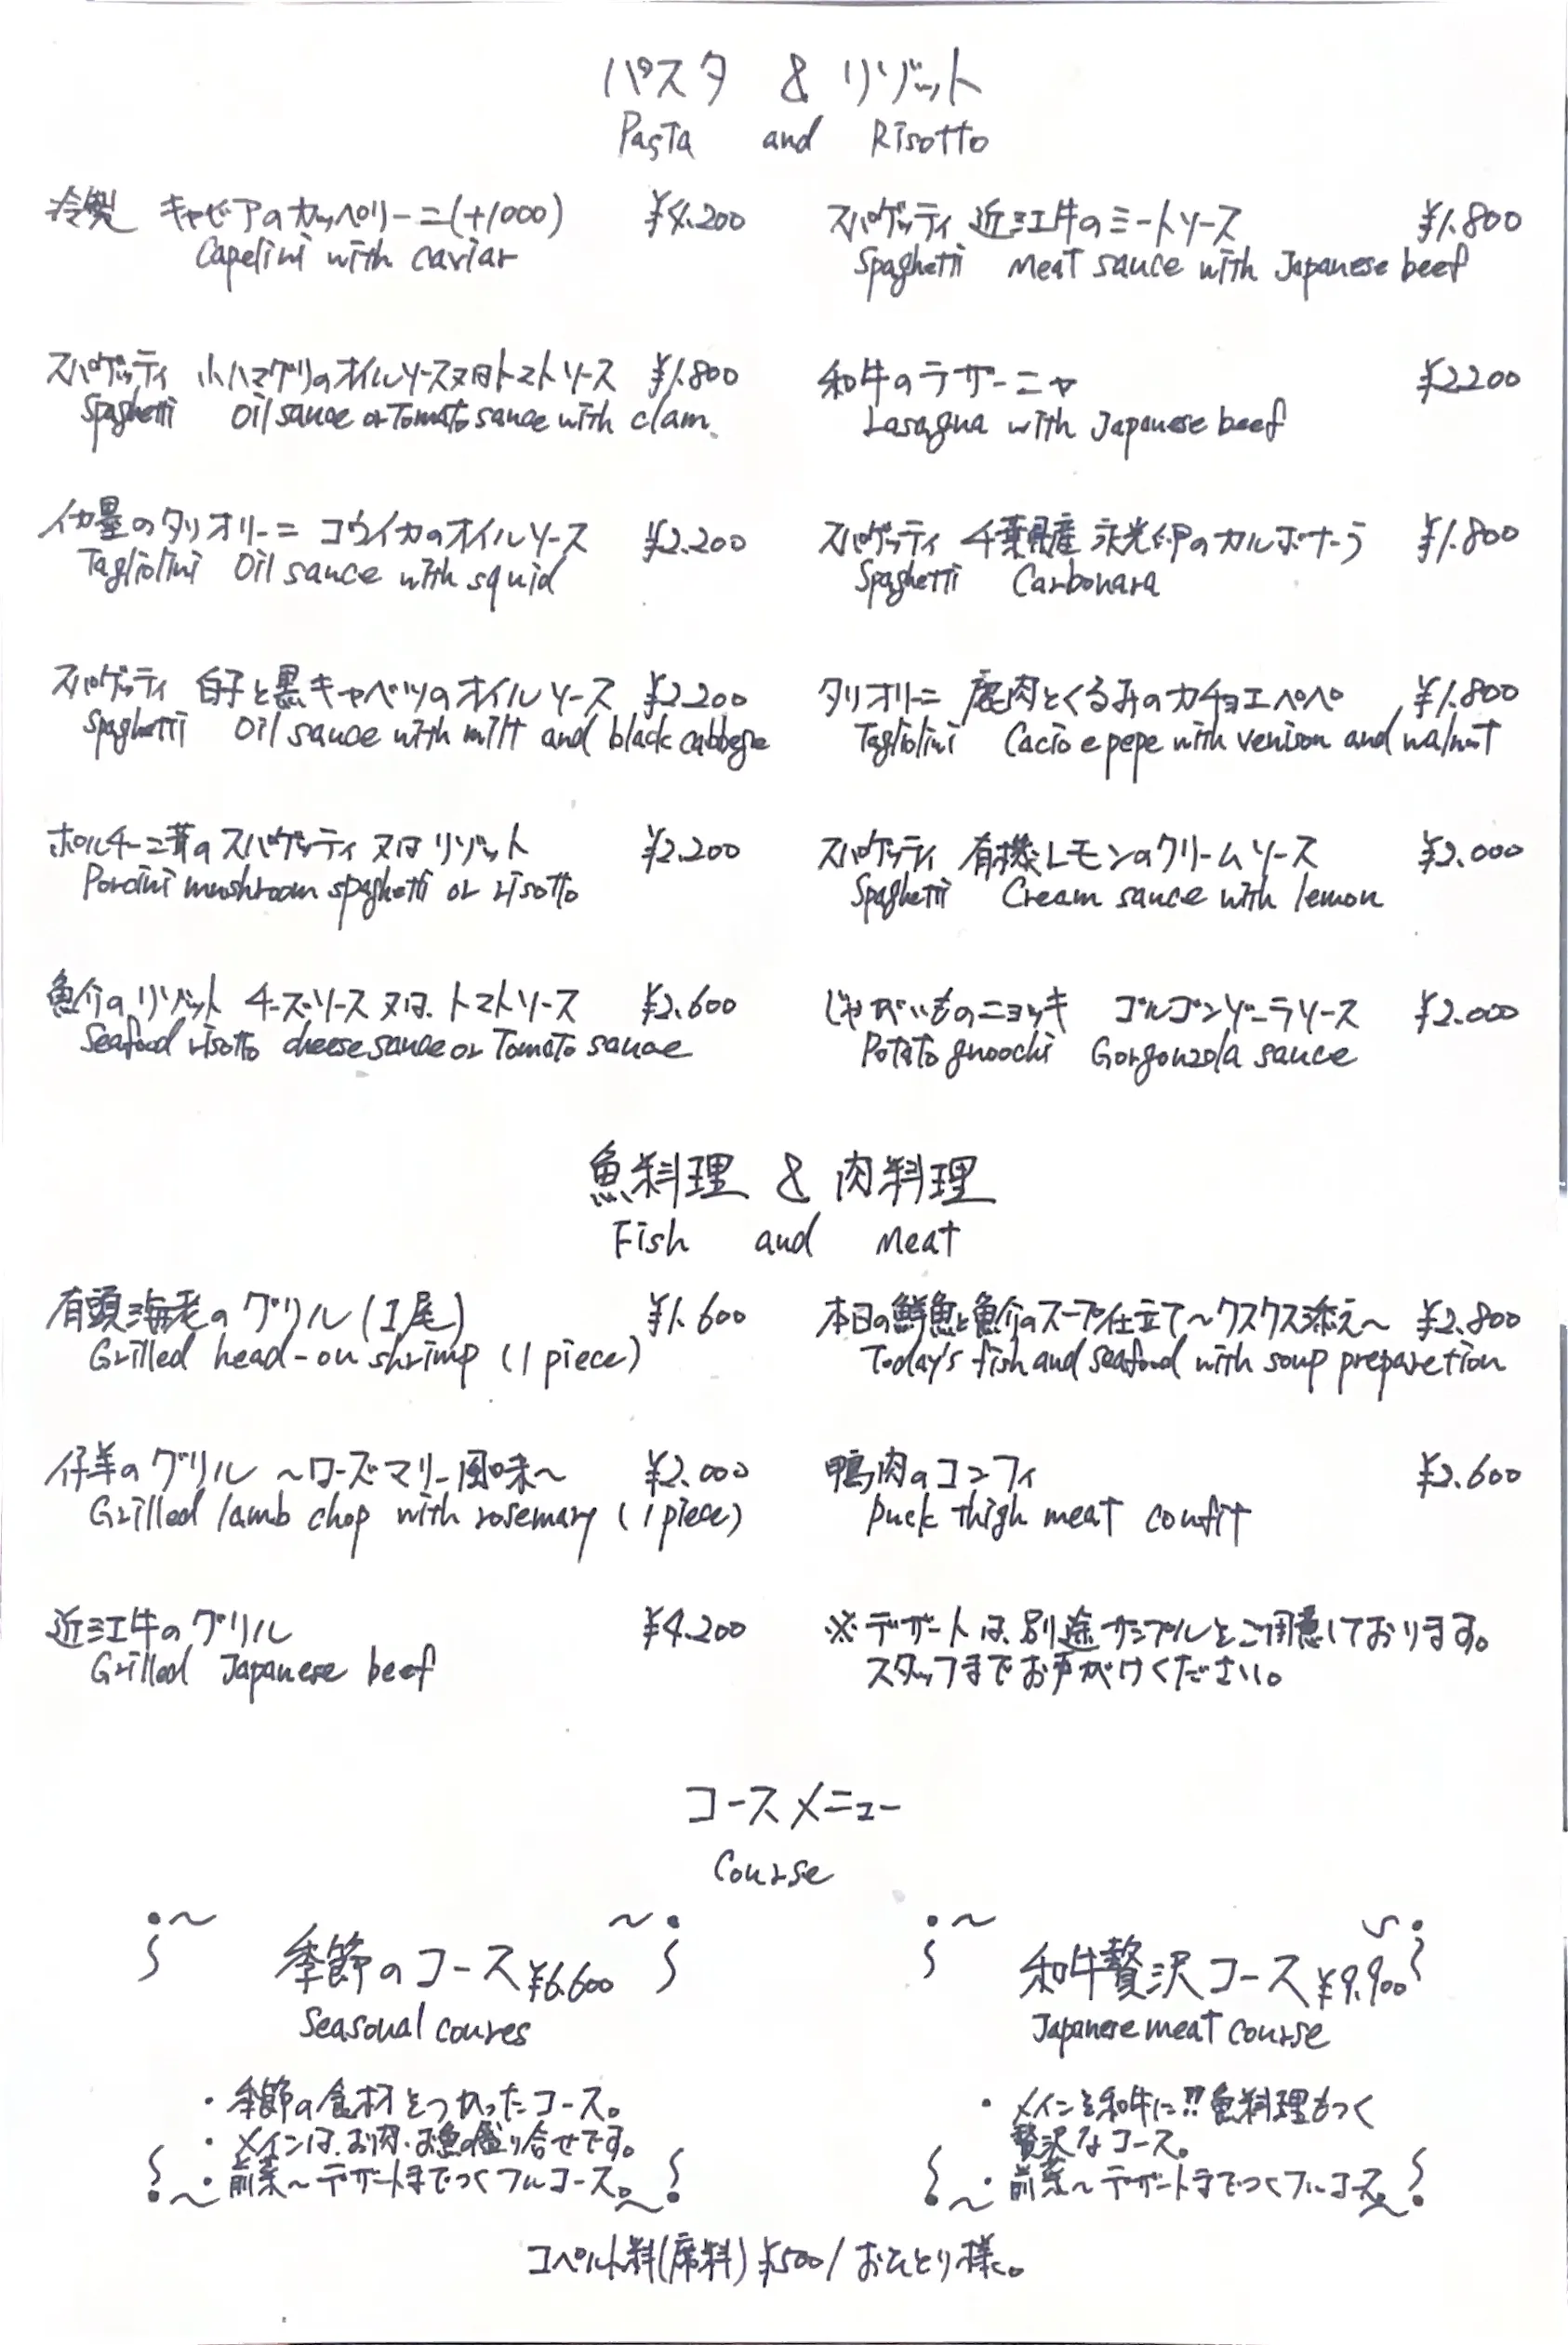 パスタ & リゾット
Pasta and Risotto
冷製 キャビアのカッペリーニ(+1000) ¥4.200
Capelini with caviar
スパゲッティ 小ハマグリのオイルソース又はトマトソース ¥1.800
Spaghetti Oil sauce or Tomato sauce with clam.
イカ墨のタリオリーニ コウイカのオイルソース ¥2.200
Tagliolini Oil sauce with squid
スパゲッティ 白子と黒キャベツのオイルソース ¥2.200
Spaghetti Oil sauce with milt and black cabbege
ポルチーニ茸のスパゲッティ又はリゾット ¥2.200
Porcini mushroom spaghetti or risotto
魚介のリゾット チーズソース又は、トマトソース ¥2.600
Seafood risotto cheese sauce or Tomato sauce
スパゲッティ 近江牛のミートソース ¥1.800
Spaghetti Meat sauce with Japanese beef
和牛のラザーニャ ¥2200
Lasagna with Japanese beef
スパゲッティ 千葉県産 永光卵のカルボナーラ ¥1.800
Spaghetti Carbonara
タリオリーニ 鹿肉とくるみのカチョエペペ ¥1.800
Tagliolini Cacio e pepe with venison and walnut
スパゲッティ 有機レモンのクリームソース ¥2.000
Spaghetti Cream sauce with lemon
じゃがいものニョッキ ゴルゴンゾーラソース ¥2.000
Potato gnocchi Gorgonzola sauce
魚料理 & 肉料理
Fish and Meat
有頭海老のグリル(1尾) ¥1.600
Grilled head-on shrimp (1 piece)
仔羊のグリル ～ローズマリー風味～ ¥2.000
Grilled lamb chop with rosemary (1 piece)
近江牛のグリル ¥4.200
Grilled Japanese beef
本日の鮮魚と魚介のスープ仕立て～クスクス添え～ ¥2.800
Today's fish and seafood with soup preparetion
鴨肉のコンフィ ¥2.600
Duck thigh meat confit
※デザートは、別途サンプルをご用意しております。
スタッフまでお声がけください。
コースメニュー
Course
季節のコース ¥6.600
Seasonal coures
・季節の食材をつかったコース。
・メインは、お肉・お魚の盛り合せです。
・前菜～デザートまでつくフルコース。
和牛贅沢コース ¥9.900
Japanese meat course
・メインを和牛に!!魚料理もつく
贅沢なコース。
・前菜～デザートまでつくフルコース。
コペルト料(席料) ¥500/おひとり様。